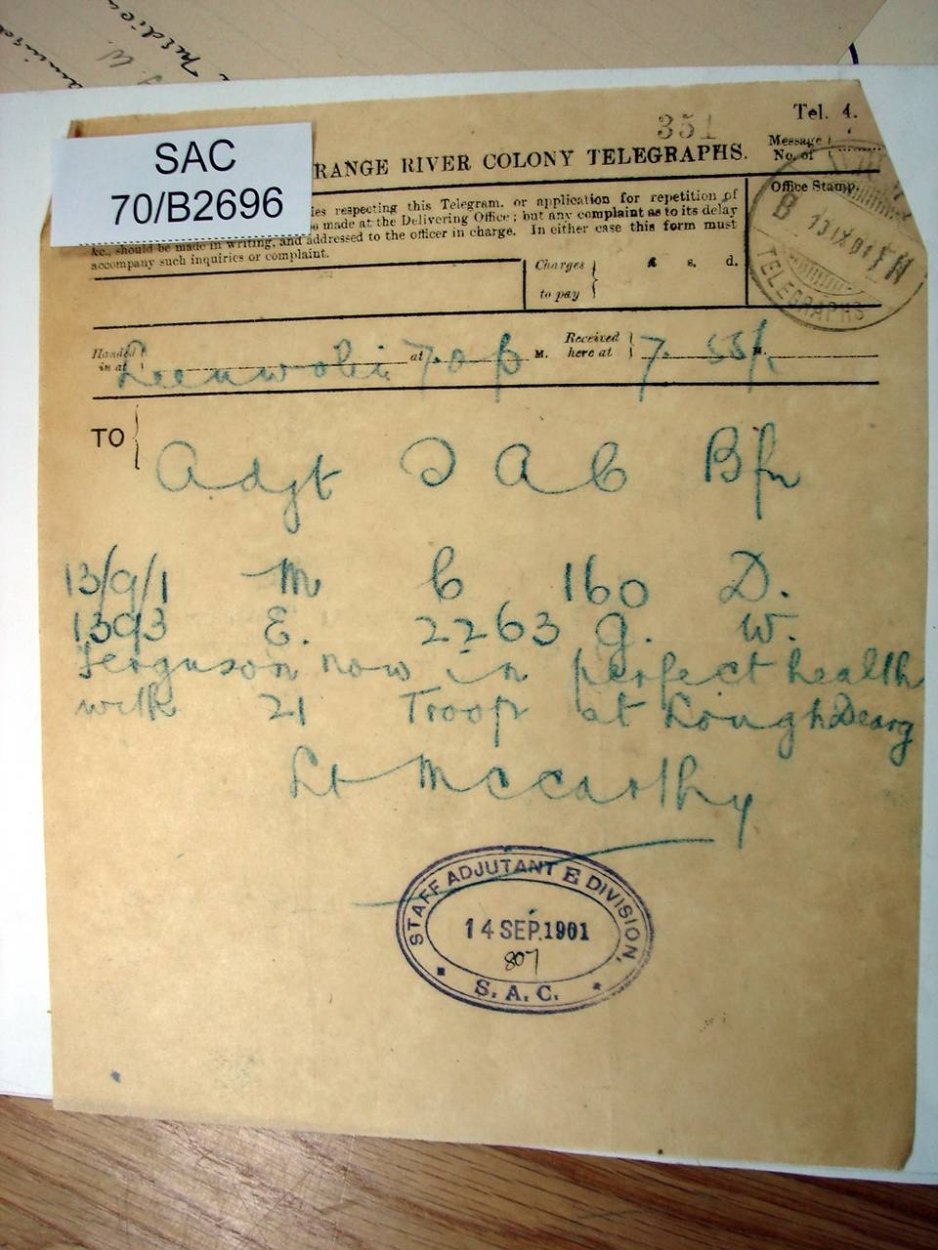 SAC
70/B2696
351
Tel. 4.
RANGE RIVER COLONY TELEGRAPHS.
Message
No. of
ies respecting this Telegram, or application for repetition of
made at the Delivering Office; but any complaint as to its delay
&c., should be made in writing, and addressed to the officer in charge. In either case this form must
accompany such inquiries or complaint.
Office Stamp.
B
13 IX 01
TELEGRAPHS
Charges
to pay
s. d.
Handed
in at
at 7.0 p M.
Received
here at
7. 55 p
TO
Adgt S A C Bfn
13/9/1 M C 160 D.
1393 E. 2263 G. W.
Ferguson now in perfect health
with 21 Troop at Lough Dearg
Lt McCarthy
STAFF ADJUTANT E DIVISION,
14 SEP. 1901
807
S. A. C.